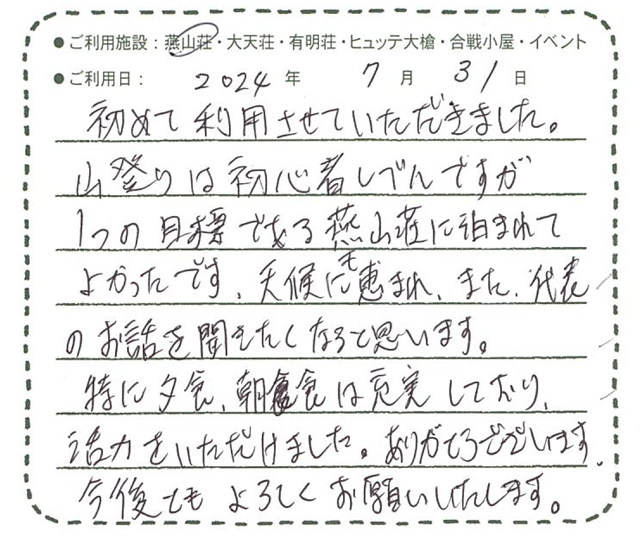 ●ご利用施設：燕山荘・大天荘・有明荘・ヒュッテ大槍・合戦小屋・イベント
●ご利用日： 2024 年 7 月 31 日
初めて利用させていただきました。
山登りは初心者レベルですが
1つの目標である燕山荘に泊まれて
よかったです。天候にも恵まれ、また、代表
のお話を聞きたくなると思います。
特に夕食、朝食は充実しており、
活力をいただけました。ありがとうございます。
今後ともよろしくお願いいたします。